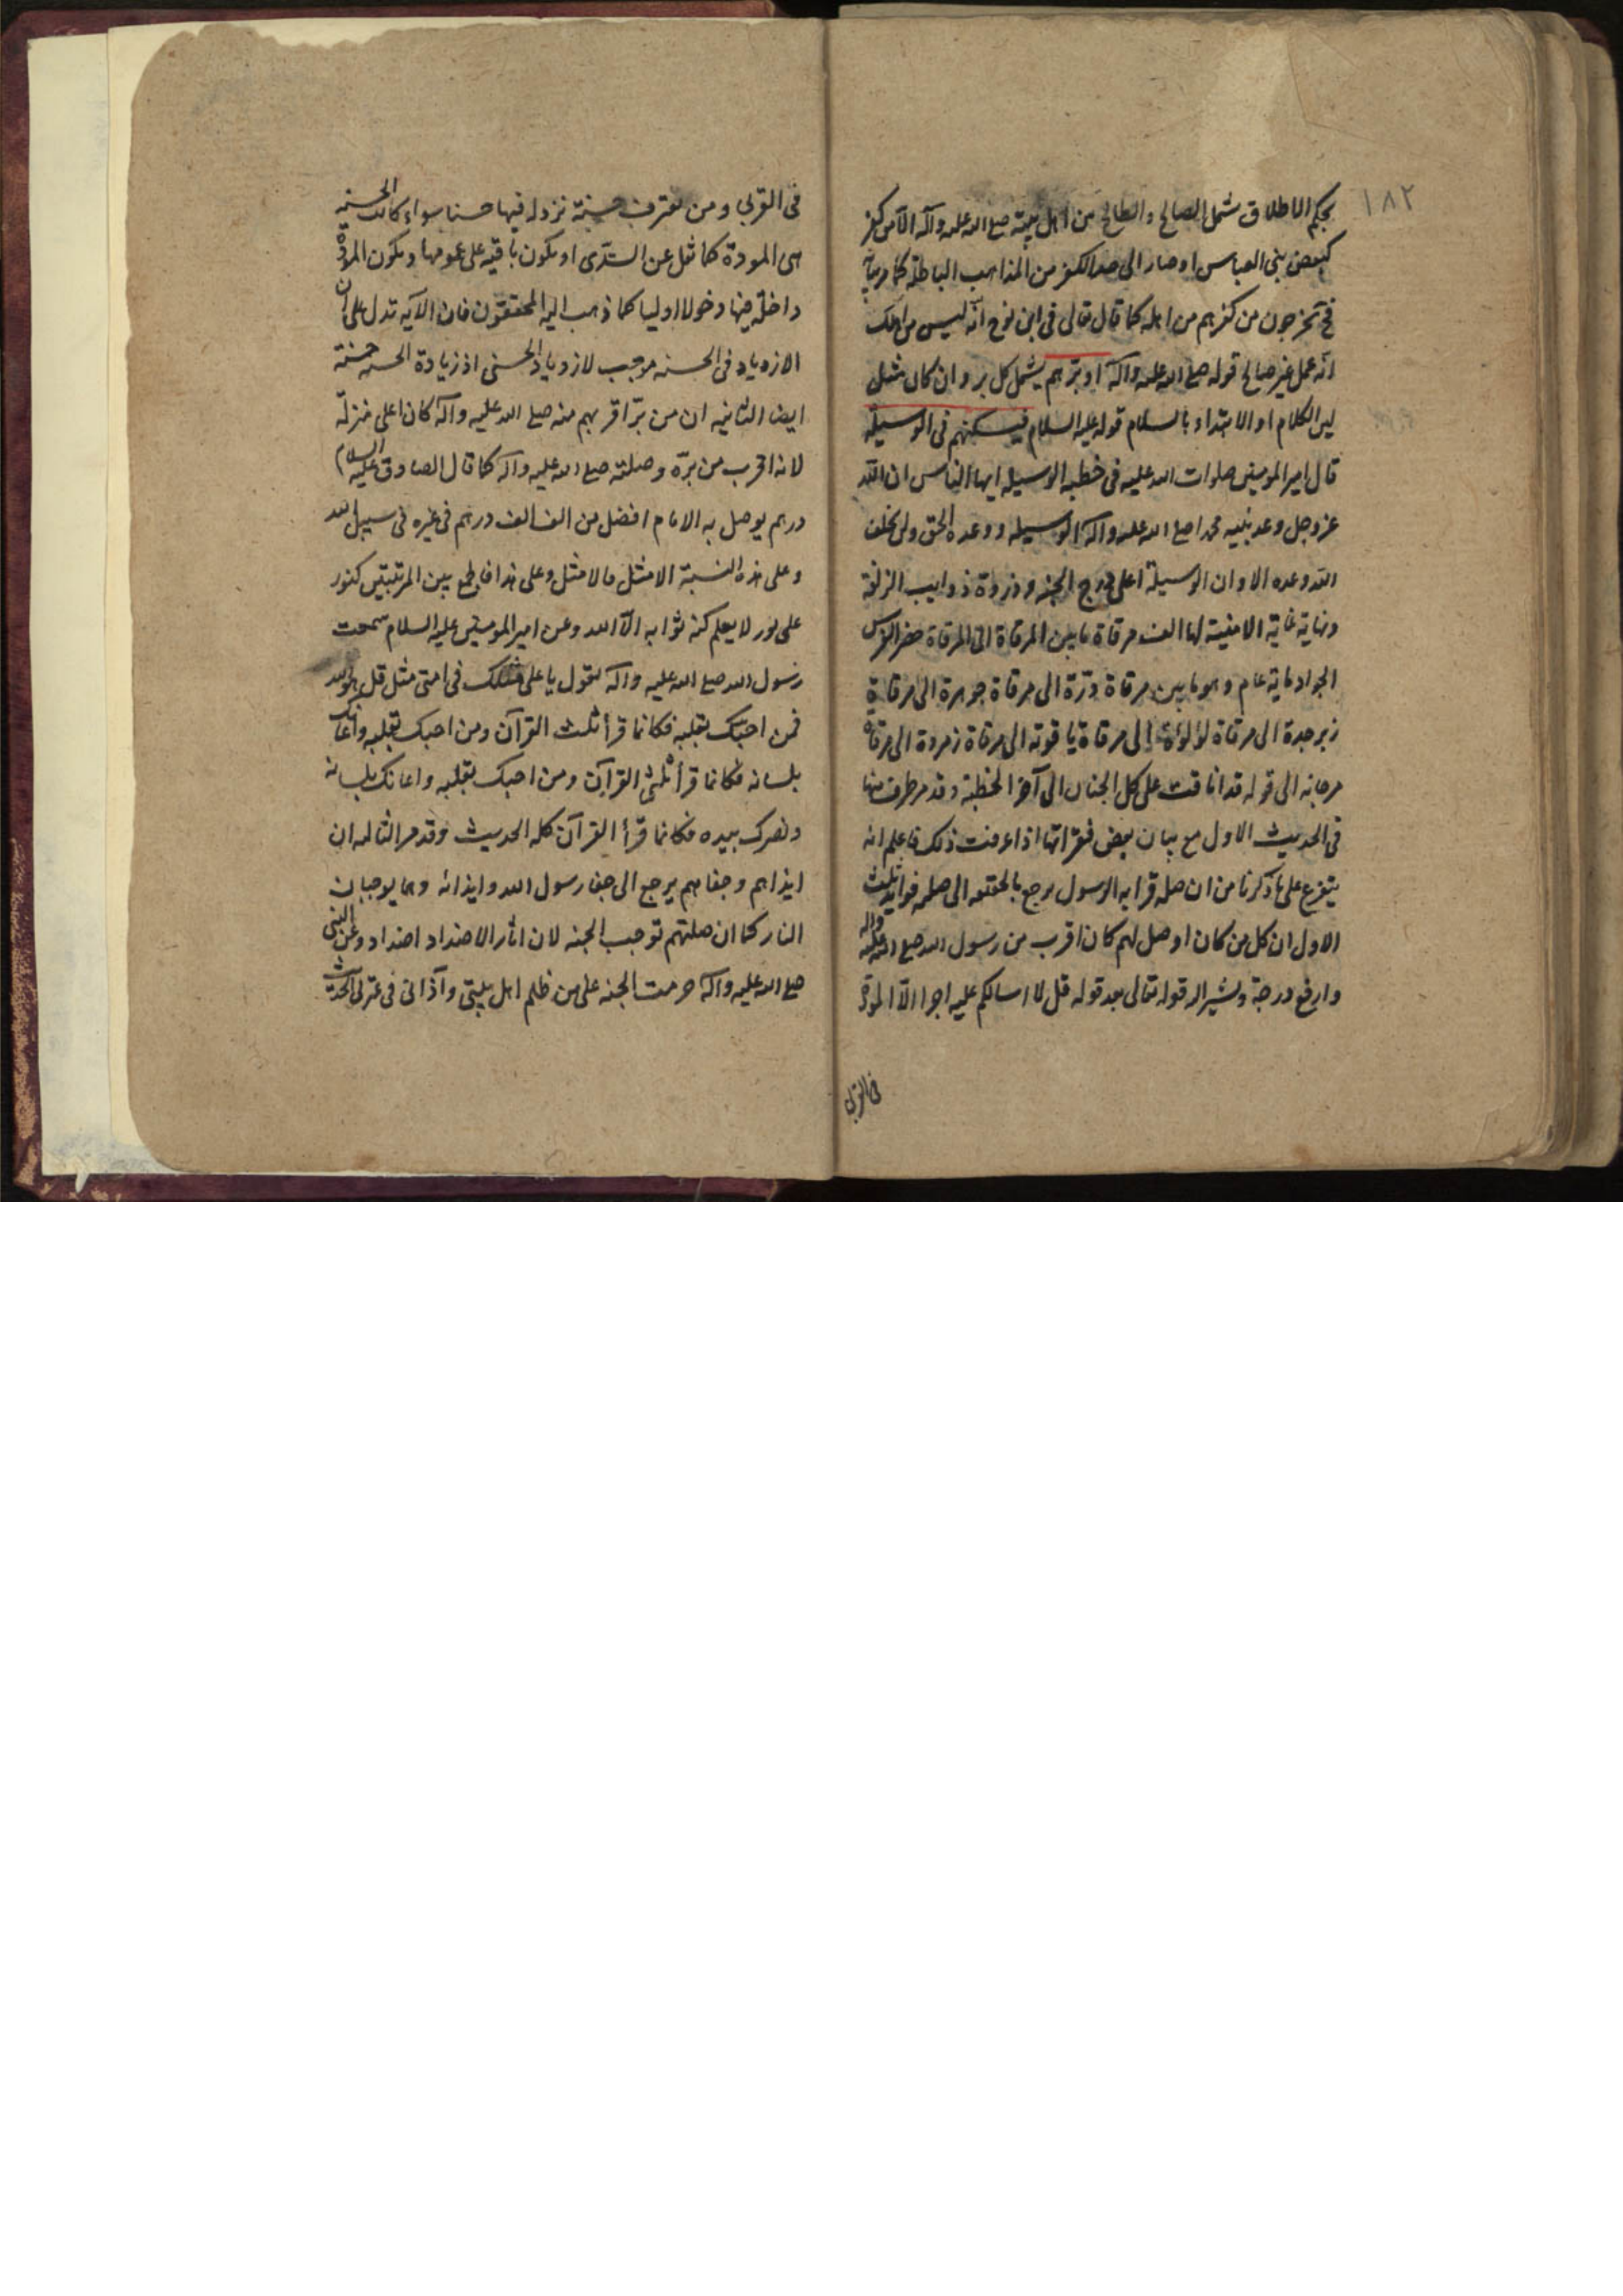 ١٨٢
بحكم الاطلاق شمل الصالح والطالح من اهل بيته صلى الله عليه وآله الا من كفر
كبعض بنى العباس او صار الى حد الكفر من المذاهب الباطلة كما مر بيانه
فيخرجون من كفرهم من اهله كما قال تعالى فى ابن نوح انه ليس من اهلك
انه عمل غير صالح قوله صلى الله عليه وآله او برهم يشمل كل بر وان كان مثل
لين الكلام او الابتداء بالسلام قوله عليه السلام فيسكنهم فى الوسيلة
قال امير المومنين صلوات الله عليه فى خطبه الوسيله ايها الناس ان الله
عز وجل وعد نبيه محمدا صلى الله عليه وآله الوسيله ووعده الحق ولن يخلف
الله وعده الا وان الوسيلة اعلى درج الجنه وذروة ذوايب الزلفة
ونهاية غاية الامنية لها الف مرقاة ما بين المرقاة الى المرقاة حضر الفرس
الجواد ماية عام وهو ما بين مرقاة درّة الى مرقاة جوهرة الى مرقاة
زبرجدة الى مرقاة لؤلؤة الى مرقاة ياقوته الى مرقاة زمردة الى مرقاة
مرجانه الى قوله قد انافت على كل الجنان الى آخر الخطبة وقد مر طرف منها
فى الحديث الاول مع بيان بعض فقراتها اذا عرفت ذلك فاعلم انه
يتفرع على ما ذكرنا من ان صله قرابه الرسول يرجع بالحقيقه الى صلته فوايد ثلث
الاول ان كل من كان اوصل لهم كان اقرب من رسول الله صلى الله عليه وآله
وارفع درجة ويشير اليه قوله تعالى بعد قوله قل لا اسالكم عليه اجرا الّا المودة
فى القربى
فى القربى ومن يقترف حسنة نزد له فيها حسنا سواء كانت الحسنه
هى المودة كما نقل عن السدّى او يكون باقيه على عمومها ويكون المودة
داخلة فيها دخولا اوليا كما ذهب اليه المحققون فان الآيه تدل على ان
الازدياد فى الحسنه موجب لازدياد الحسنى اذ زيادة الحسنه حسنة
ايضا الثانيه ان من برّ اقربهم منه صلى الله عليه وآله كان اعلى منزلة
لانه اقرب من برّه وصلته صلى الله عليه وآله كما قال الصادق عليه السلام
درهم يوصل به الامام افضل من الف الف درهم فى غيره فى سبيل الله
وعلى هذه النسبة الامثل فالامثل وعلى هذا فالجمع بين المرتبتين كنور
على نور لا يعلم كنه ثوابه الّا الله وعن امير المومنين عليه السلام سمعت
رسول الله صلى الله عليه وآله يقول يا على مثلك فى امتى مثل قل هو الله
فمن احبّك بقلبه فكانما قرأ ثلث القرآن ومن احبك بقلبه واعانك
بلسانه فكانما قرأ ثلثى القرآن ومن احبك بقلبه واعانك بلسانه
ونصرك بيده فكانما قرأ القرآن كله الحديث وقد مر الثالثه ان
ايذاهم وجفاهم يرجع الى جفا رسول الله وايذائه وهما يوجبان
النار كما ان صلتهم توجب الجنه لان اثار الاضداد اضداد وعن النبى
صلى الله عليه وآله حرمت الجنه على من ظلم اهل بيتى وآذانى فى عترتى الحديث